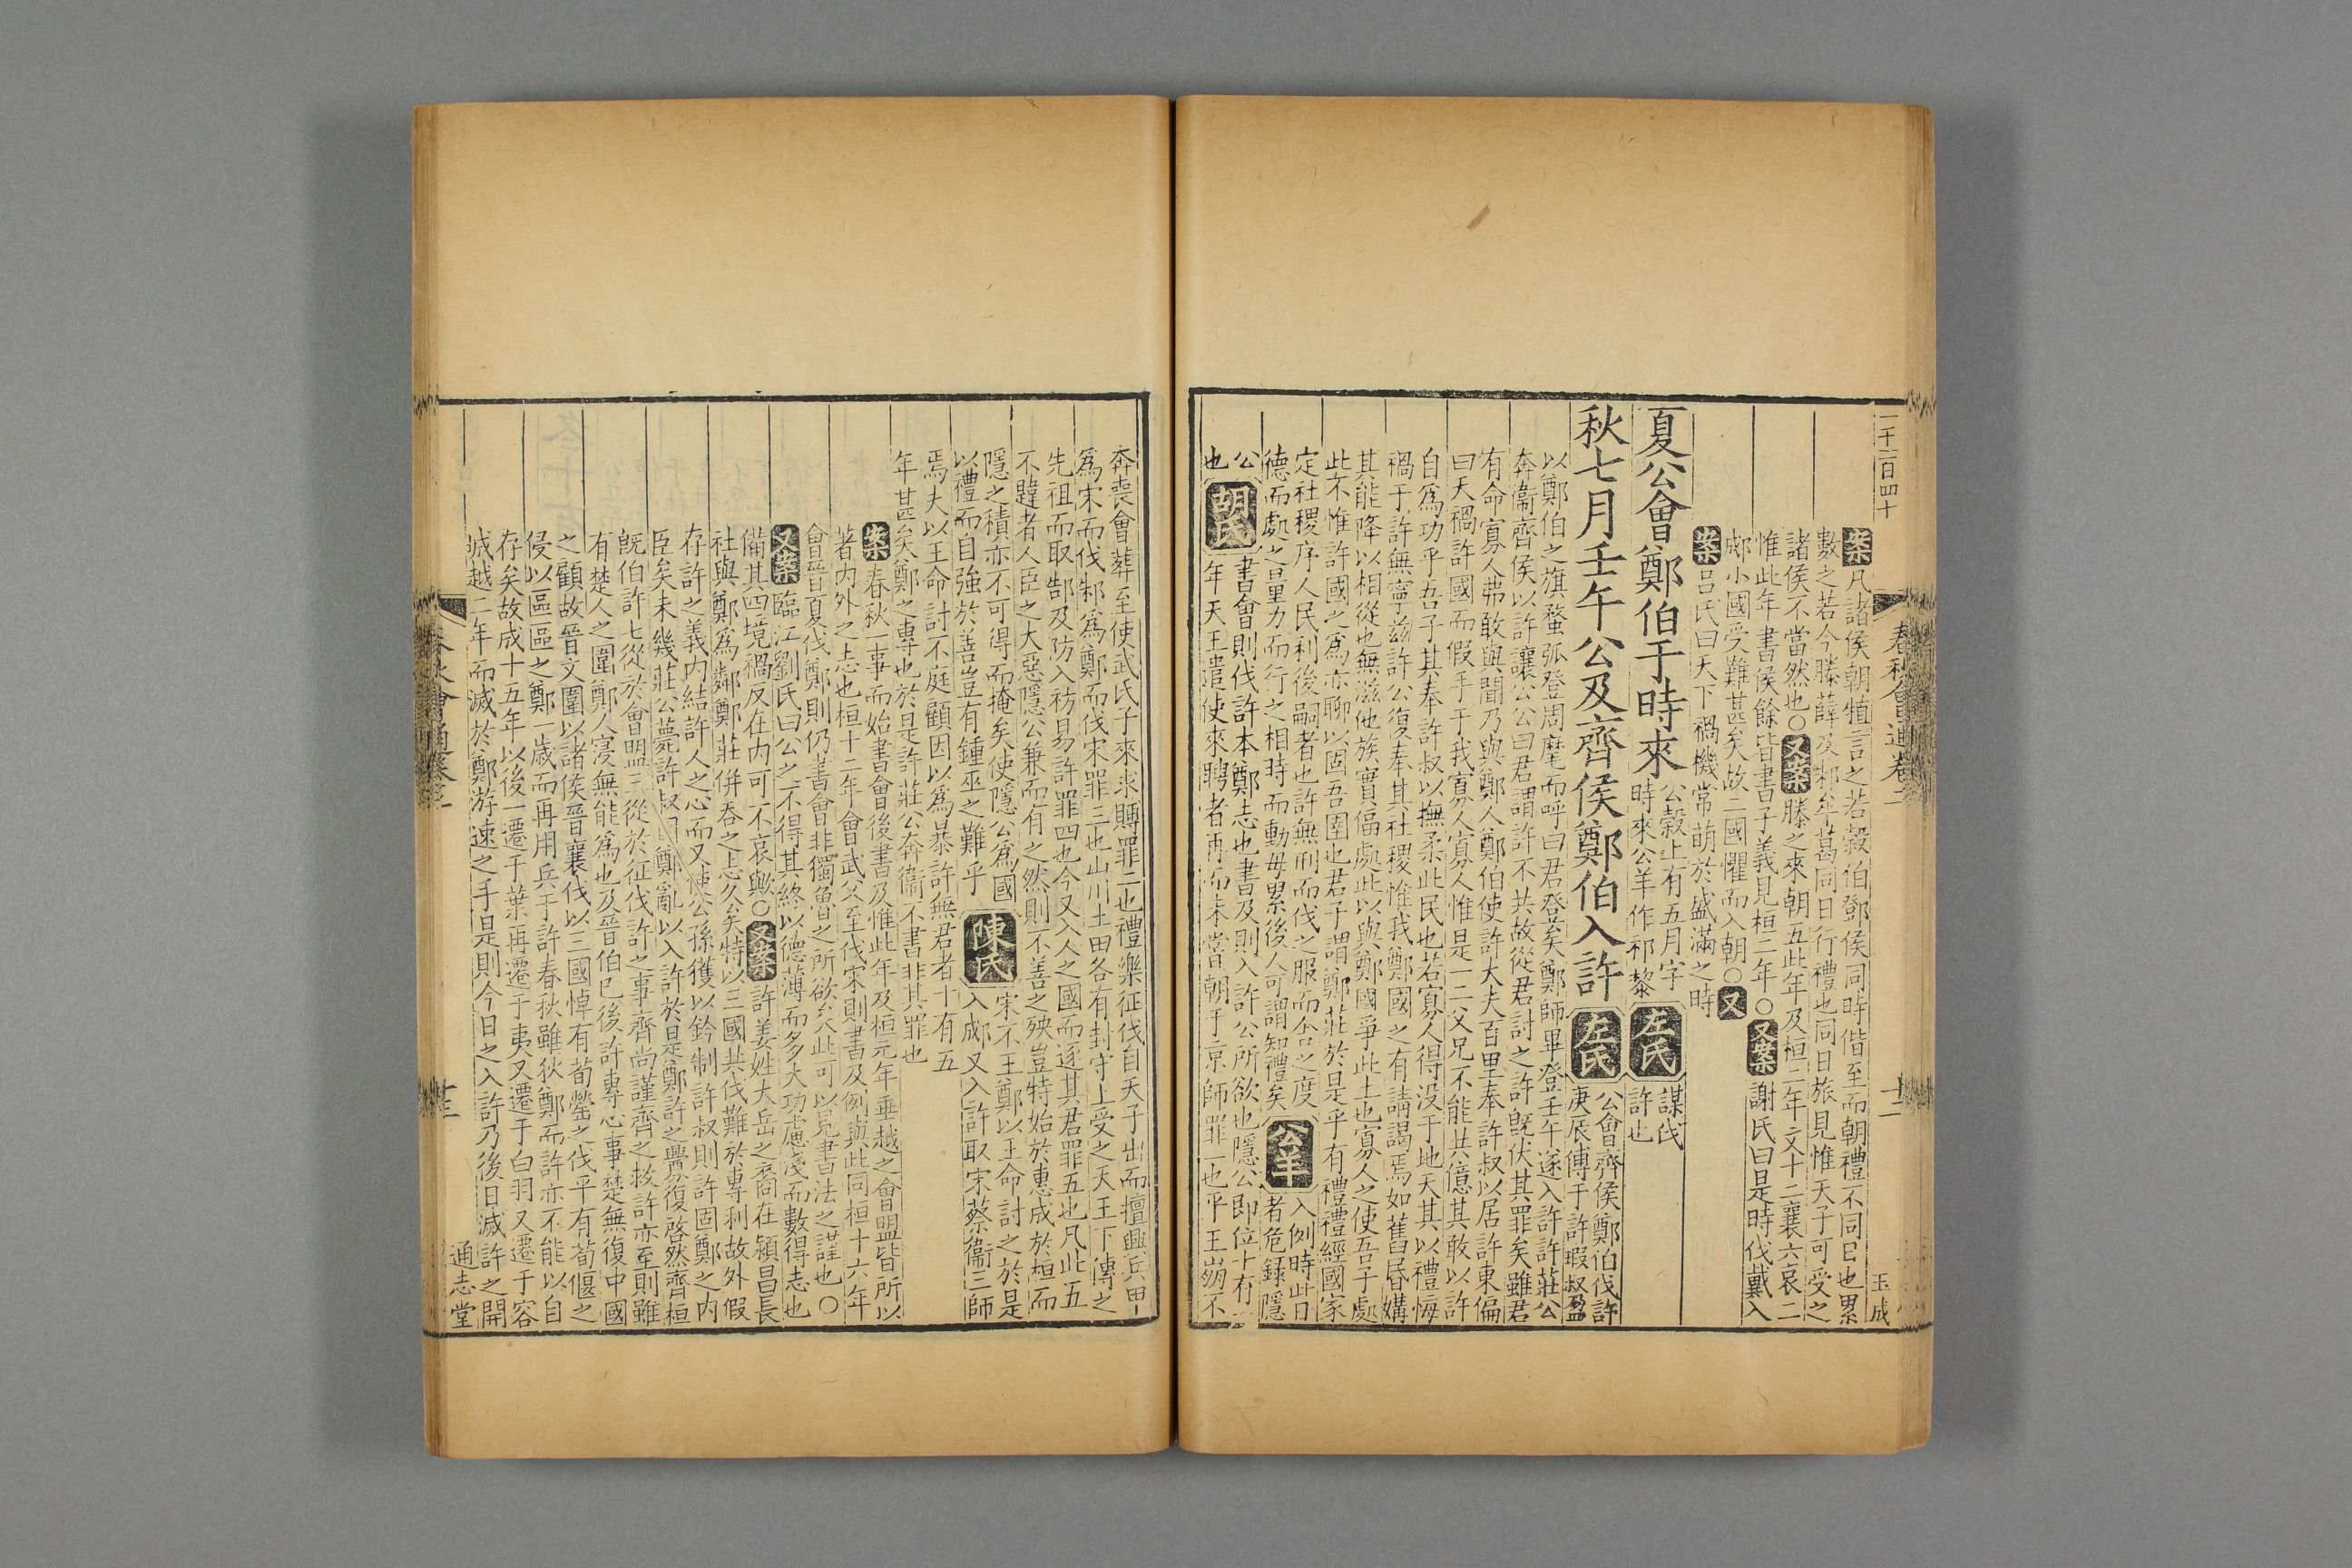 春秋會通卷二
十二
玉成
案凡諸侯朝犆言之若榖伯鄧侯同時偕至而朝禮不同日也累
數之若今滕薛及邾牟葛同日行禮也同日旅見惟天子可受之
諸侯不當然也○又案滕之來朝五此年及桓二年文十二襄六哀二
惟此年書侯餘皆書子義見桓二年○又案謝氏曰是時伐戴入
郕小國受難甚矣故二國懼而入朝○又
案呂氏曰天下禍機常萌於盛滿之時
夏公會鄭伯于時來
公榖上有五月字
時來公羊作祁黎
左氏
謀伐
許也
秋七月壬午公及齊侯鄭伯入許
左氏
公會齊侯鄭伯伐許
庚辰傅于許瑕叔盈
以鄭伯之旗蝥弧登周麾而呼曰君登矣鄭師畢登壬午遂入許許莊公
奔衞齊侯以許讓公公曰君謂許不共故從君討之許既伏其罪矣雖君
有命寡人弗敢與聞乃與鄭人鄭伯使許大夫百里奉許叔以居許東偏
曰天禍許國而假手于我寡人寡人惟是一二父兄不能共億其敢以許
自爲功乎吾子其奉許叔以撫柔此民也若寡人得没于地天其以禮悔
禍于許無寧兹許公復奉其社稷惟我鄭國之有請謁焉如舊昬媾
其能降以相從也無滋他族實偪處此以與鄭國爭此土也寡人之使吾子處
此不惟許國之爲亦聊以固吾圉也君子謂鄭莊於是乎有禮禮經國家
定社稷序人民利後嗣者也許無刑而伐之服而舍之度
德而處之量力而行之相時而動毋累後人可謂知禮矣
公羊
入例時此日
者危録隱
公
也
胡氏
書會則伐許本鄭志也書及則入許公所欲也隱公即位十有一
年天王遣使來聘者再而未嘗朝于京師罪一也平王崩不
奔喪會葬至使武氏子來求賻罪二也禮樂征伐自天子出而擅興兵甲
爲宋而伐邾爲鄭而伐宋罪三也山川土田各有封守上受之天王下傳之
先祖而取郜及防入祊易許罪四也今又入人之國而逐其君罪五也凡此五
不韙者人臣之大惡隱公兼而有之然則不善之殃豈特始於惠成於桓而
隱之積亦不可得而掩矣使隱公爲國
以禮而自強於善豈有鍾巫之難乎
陳氏
宋不王鄭以王命討之於是
入郕又入許取宋蔡衞三師
焉夫以王命討不庭顧因以爲暴許無君者十有五
年甚矣鄭之專也於是許莊公奔衞不書非其罪也
案春秋一事而始書會後書及惟此年及桓元年垂越之會盟皆所以
著内外之志也桓十二年會武父至伐宋則書及例與此同桓十六年
會曹夏伐鄭則仍書會會非獨魯之所欲矣此可以見書法之謹也○
又案臨江劉氏曰公之不得其終以德薄而多大功慮淺而數得志也
備其四境禍反在内可不哀歟○又案許姜姓大岳之裔在潁昌長
社與鄭爲鄰鄭莊併吞之志久矣特以三國共伐難於專利故外假
存許之義内結許人之心而又使公孫獲以鈐制許叔則許固鄭之内
臣矣未幾莊公薨許叔因鄭亂以入許於是鄭許之釁復啓然齊桓
旣伯許七從於會盟三從於征伐許之事齊尚謹齊之救許亦至則雖
有楚人之圍鄭人寔無能爲也及晉伯已後許專心事楚無復中國
之顧故晉文圍以諸侯晉襄伐以三國悼有荀罃之伐平有荀偃之
侵以區區之鄭一歲而再用兵于許春秋雖狄鄭而許亦不能以自
存矣故成十五年以後一遷于葉再遷于夷又遷于白羽又遷于容
城越二年而滅於鄭游速之手是則今日之入許乃後日滅許之開
通志堂
春秋會通卷二